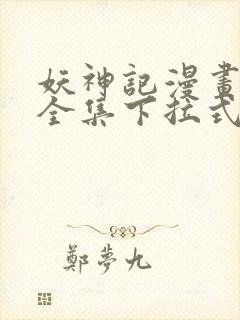 妖神記漫畫
全集下拉式
鄭夢九